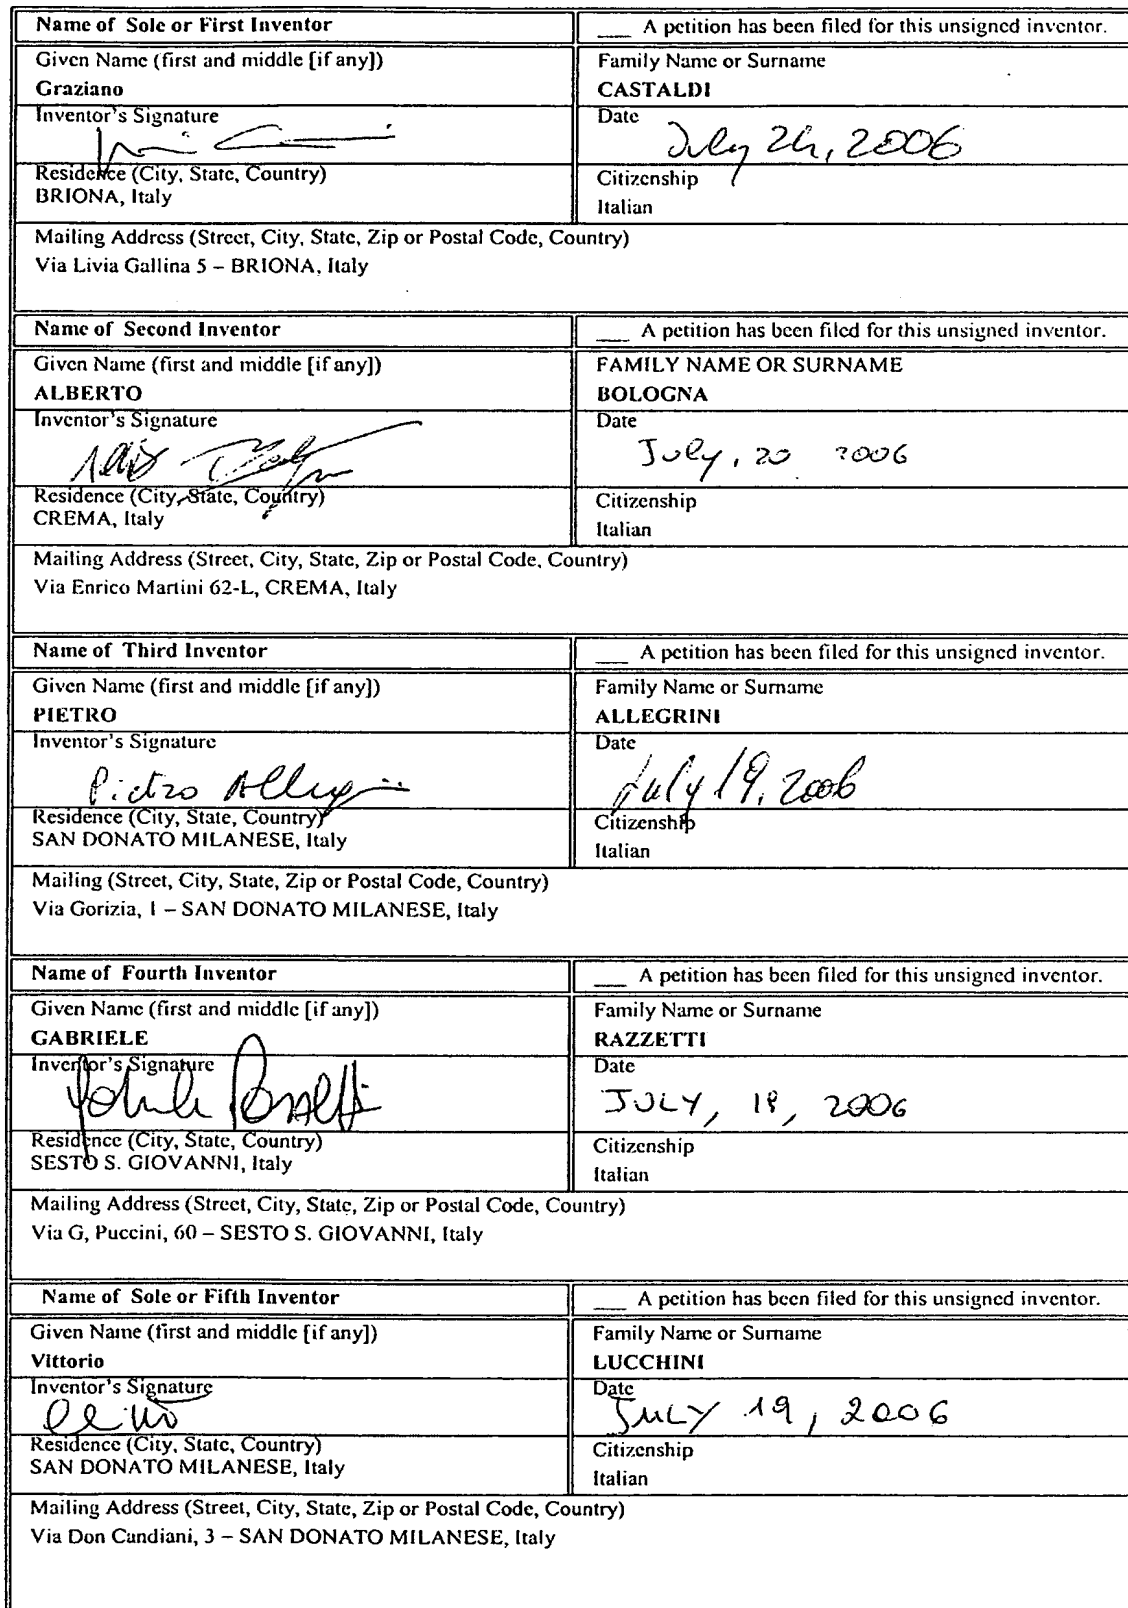 Name of Sole or First Inventor
___ A petition has been filed for this unsigned inventor.
Given Name (first and middle [if any])
Graziano
Family Name or Surname
CASTALDI
Inventor's Signature
Date
July 24, 2006
Residence (City, State, Country)
BRIONA, Italy
Citizenship
Italian
Mailing Address (Street, City, State, Zip or Postal Code, Country)
Via Livia Gallina 5 – BRIONA, Italy
Name of Second Inventor
___ A petition has been filed for this unsigned inventor.
Given Name (first and middle [if any])
ALBERTO
FAMILY NAME OR SURNAME
BOLOGNA
Inventor's Signature
Date
July, 20 2006
Residence (City, State, Country)
CREMA, Italy
Citizenship
Italian
Mailing Address (Street, City, State, Zip or Postal Code, Country)
Via Enrico Martini 62-L, CREMA, Italy
Name of Third Inventor
___ A petition has been filed for this unsigned inventor.
Given Name (first and middle [if any])
PIETRO
Family Name or Surname
ALLEGRINI
Inventor's Signature
Pietro Allegrini
Date
July 19, 2006
Residence (City, State, Country)
SAN DONATO MILANESE, Italy
Citizenship
Italian
Mailing (Street, City, State, Zip or Postal Code, Country)
Via Gorizia, 1 – SAN DONATO MILANESE, Italy
Name of Fourth Inventor
___ A petition has been filed for this unsigned inventor.
Given Name (first and middle [if any])
GABRIELE
Family Name or Surname
RAZZETTI
Inventor's Signature
Date
JULY, 18, 2006
Residence (City, State, Country)
SESTO S. GIOVANNI, Italy
Citizenship
Italian
Mailing Address (Street, City, State, Zip or Postal Code, Country)
Via G, Puccini, 60 – SESTO S. GIOVANNI, Italy
Name of Sole or Fifth Inventor
___ A petition has been filed for this unsigned inventor.
Given Name (first and middle [if any])
Vittorio
Family Name or Surname
LUCCHINI
Inventor's Signature
Date
JULY 19, 2006
Residence (City, State, Country)
SAN DONATO MILANESE, Italy
Citizenship
Italian
Mailing Address (Street, City, State, Zip or Postal Code, Country)
Via Don Candiani, 3 – SAN DONATO MILANESE, Italy